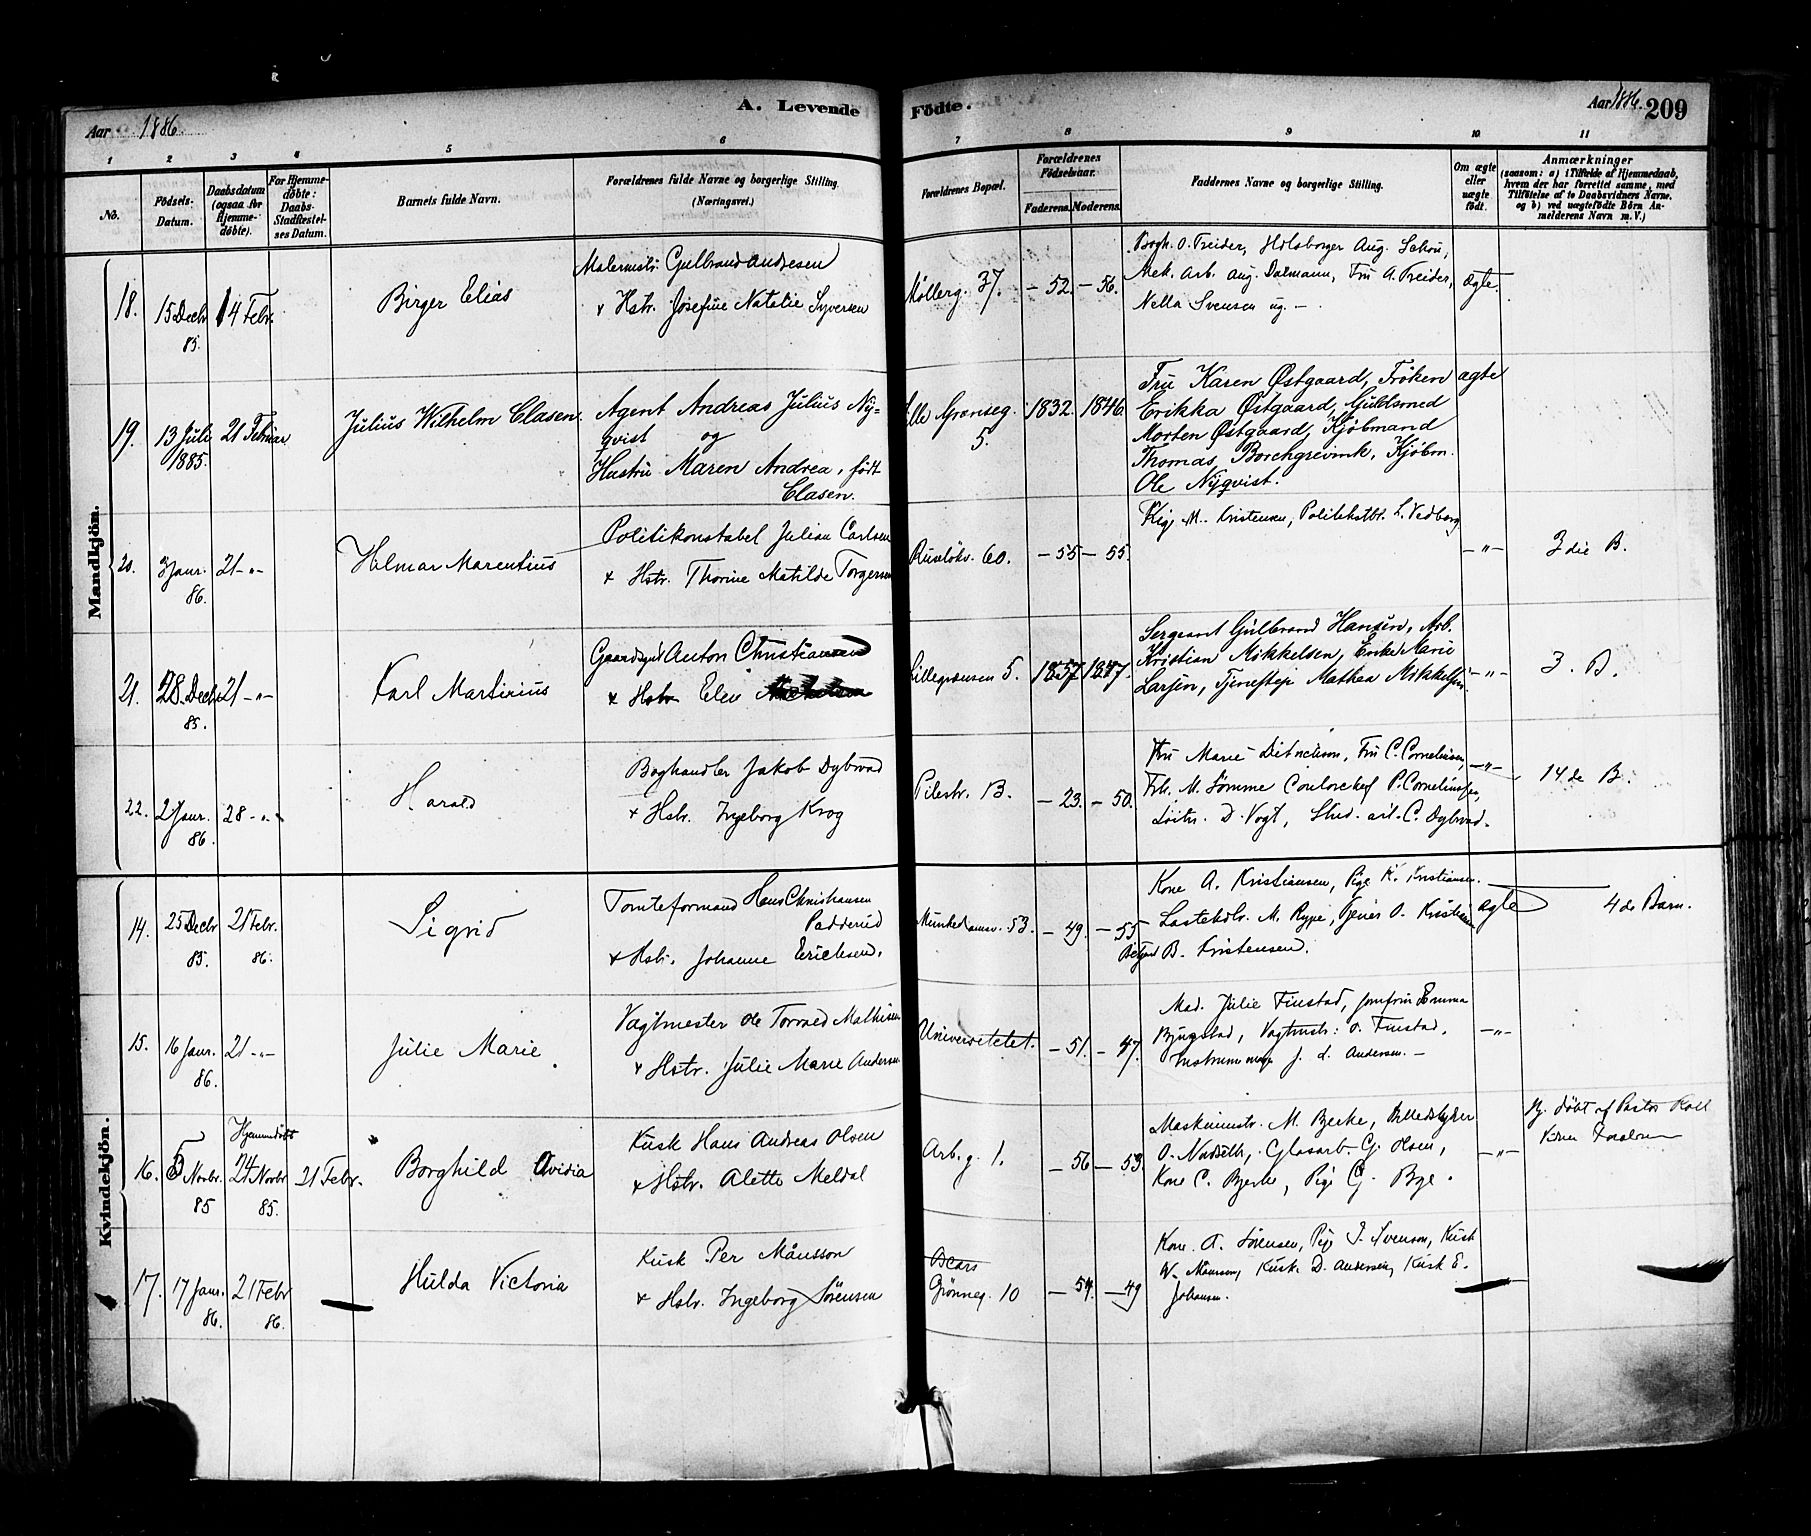 A. Levende Födte.
Aar 1886.
Aar 1886. 209
1 2 3 4 5 6 7 8 9 10 11
No.
Födsels-Datum.
Daabsdatum (ogsaa for Hjemme-döbte).
For Hjemme-döbte: Daabs-Stadfæstel-ses Datum.
Barnets fulde Navn.
Forældrenes fulde Navne og borgerlige Stilling. (Næringsvei.)
Forældrenes Bopæl.
Forældrenes Födselsaar.
Faderens. Moderens.
Faddernes Navne og borgerlige Stilling.
Om ægte eller uægte født.
Anmærkninger
(saasom: a) i Tilfælde af Hjemmedaab,
hvem der har forrettet samme, med
Tilföielse af to Daabsvidners Navne,
og b) ved uægtefödte Börn An-
melderens Navn m. V.)
Mandkjön.
18. 15 Decbr 85. 14 Febr. Birger Elias
Malermstr. Gulbrand Andresen
+ Hstr. Josefine Natalie Syversen
Møllerg. 37. – 52. – 56.
Bogh. O. Treider, Aug. Schou,
Mek. Arb. Aug. Dalmann, Fru A. Treider,
Nella Svensen ug. –
ægte.
19. 13 Juli 1885. 21 Februar Julius Wilhelm Clasen.
Agent Andreas Julius Ny=
qvist og
Hustru Maren Andrea, født
Clasen.
Lille Grænseg. 5. 1832. 1846.
Fru Karen Østgaard, Frøken
Erikka Østgaard, Guldsmed
Morten Østgaard, Kjøbmand
Thomas Borchgrevink, Kjøbm.
Ole Nyqvist.
ægte
20. 3 Janr. 86. 21 – " – Helmar Marentius
Politikonstabel Julian Carlsen
+ Hstr. Thorine Matilde Torgersen
Ruseløkv. 60. – 55 – 55.
Pige M. Kristensen, Politikstbl. L. Vedborg
– " – 3 die B.
21. 28. Decbr 85. 21 – " – Karl Martinius
Gaardsgut Anton Christiansen
+ Hstr Elen
Lillegrænsen 5. 1857. 1847.
Sergeant Gulbrand Hansen, Arb.
Kristian Mikkelsen, Enke Marie
Larsen, Tjenestep. Mathea Mikkelsen
– " – 3. B.
22. 2 Janr. 86. 28 – " – Harald
Boghandler Jakob Dybwad
+ Hstr. Ingeborg Krog
Pilestr. 13. – 23. – 50.
Fru Marie Ditrichson, Fru C. Cornelinsen,
Frk. M. Sømme P. Cornelinssen,
Løitn. D. Vogt, Stud. art. C. Dybwad.
– " – 14. de B.
Kvindekjön.
14. 25 Decbr 85. 21 Febr. 86. Sigrid
Tomteformand Hans Christiansen
Padderud
+ Hstr. Johanne Ericksen.
Munkedamsv. 53. – 49. – 55.
Kone A. Kristiansen, Pige K. Kristiansen.
Lastehdlr. M. Rype, O. Kristiansen
B. Kristensen.
ægte 4 de Barn.
15. 16 Janr. 86. 21 – " – Julie Marie
Vagtmester Ole Torvald Mathisen
+ Hstr. Julie Marie Andersen
Universitetet. – 51. – 47.
Mad. Julie Finstad, Jomfru Emma
Bjugstad, Vagtmstr. O. Finstad,
Instrummager J. L. Andersen. –
– " –
16. 5 Novbr. 85 Hjemmedøbt 24 Novbr 85. 21 Febr. Borghild Ovidia
Kusk Hans Andreas Olsen
+ Hstr. Alette Meldal
Arb. g. 1. – 56 – 53.
Maskinmstr. M. Bjerke, Billedskjærer
O. Nordseth, Glasarb. G. Olsen,
Kone C. Bjerke, Pige G. Bye.
– " –
Hj. døbt af Pastor Rall
17. 17 Janr. 86. 21 Febr 86. Hulda Victoria
Kusk Per Månsson
+ Hstr. Ingeborg Sörensen
Oscars
Grønneg. 10 – 54. – 49
Kone A. Sørensen, Pige I. Svenson, Kusk
W. Månsson, Kusk D. Andersen, Kusk E.
Johansen.